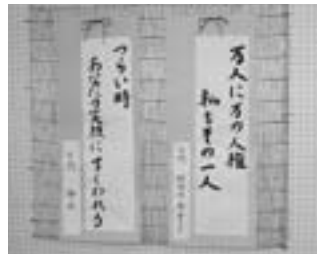 万人に万の人権
私もその一人
つらい時
あなたの笑顔にすくわれる